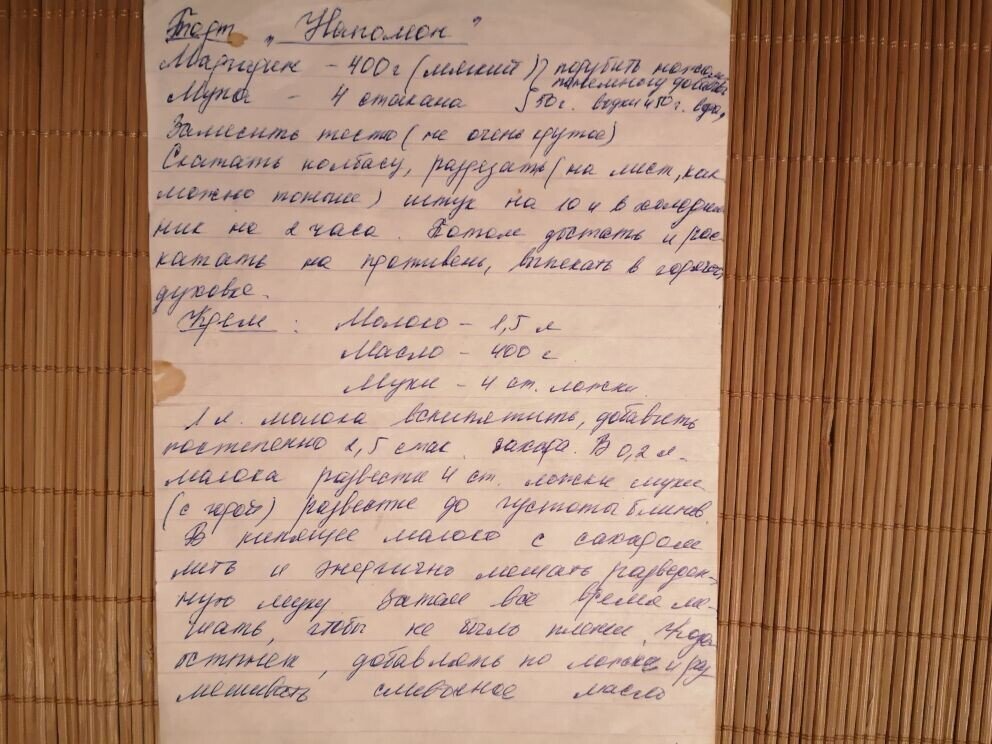 Торт „Наполеон"
Маргарин - 400 г (мягкий) } порубить ножом,
понемногу добавить
Мука - 4 стакана } 50 г. водки и 50 г. воды,
Замесить тесто (не очень крутое)
Скатать колбасу, разрезать (на лист, как
можно тоньше) штук на 10 и в холодиль
ник на 2 часа. Потом достать и рас-
катать на противень, выпекать в горячей
духовке.
Крем : Молоко - 1,5 л
Масло - 400 г
Муки - 4 ст. ложки
1 л. молока вскипятить, добавить
постепенно 2,5 стак. сахара. В 0,2 л.
молока развести 4 ст. ложки муки
(с горой) развести до густоты блинов.
В кипящее молоко с сахаром
лить и энергично мешать разведен-
ную муку. Затем все время ме-
шать, чтобы не было пленки. Когда
остынет, добавлять по ложке и раз
мешивать сливочное масло